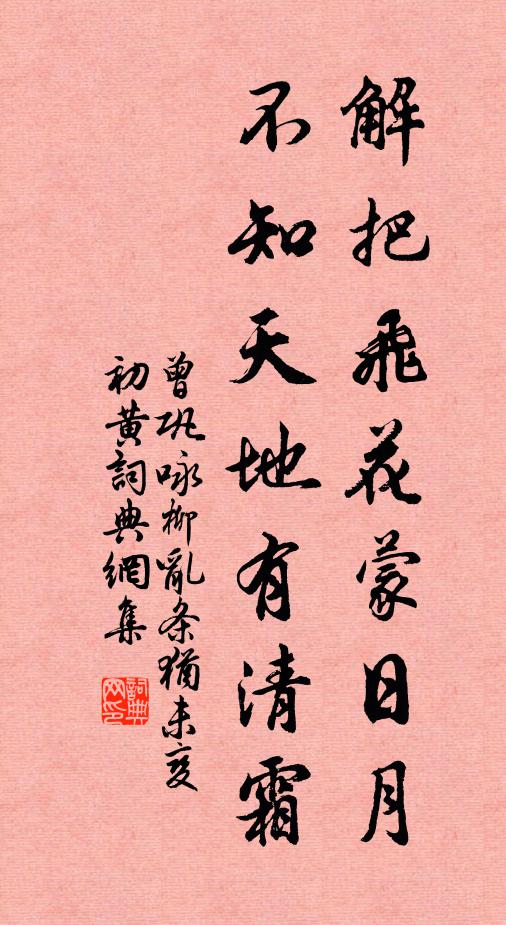 解把飛花蒙日月
不知天地有清霜
曾巩咏柳亂条猶未变
初黄詞典網集
詞典
网印